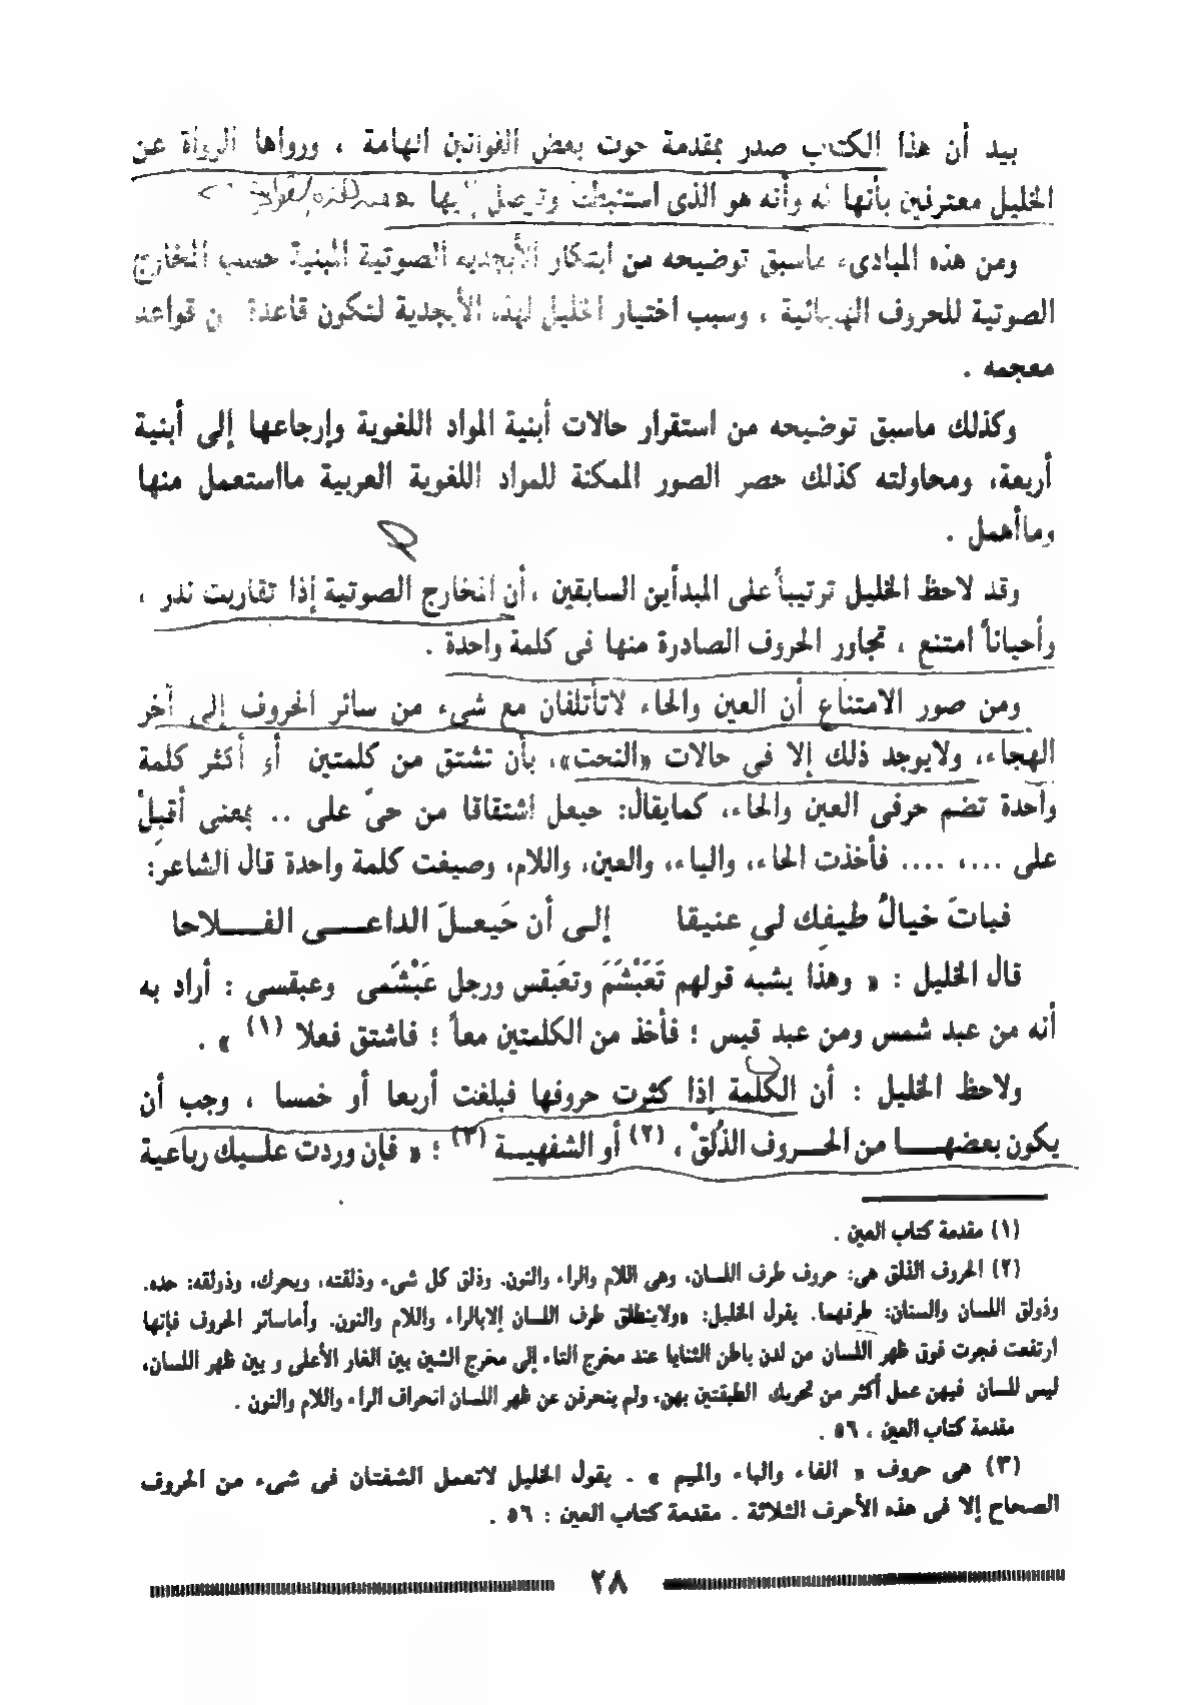 بيد أن هذا الكتاب صدر بمقدمة حوت بعض القوانين الهامة ، ورواها الرواة عن
الخليل معترفين بأنها له وأنه هو الذى استنبطها وتوصل إليها
ومن هذه المبادىء ماسبق توضيحه من ابتكار الأبجدية الصوتية المبنية حسب المخارج
الصوتية للحروف الهجائية ، وسبب اختيار الخليل لهذه الأبجدية لتكون قاعدة من قواعد
معجمه .
وكذلك ماسبق توضيحه من استقرار حالات أبنية المواد اللغوية وإرجاعها إلى أبنية
أربعة، ومحاولته كذلك حصر الصور الممكنة للمواد اللغوية العربية مااستعمل منها
وماأهمل .
وقد لاحظ الخليل ترتيباً على المبدأين السابقين ، أن المخارج الصوتية إذا تقاربت ندر ،
وأحياناً امتنع ، تجاور الحروف الصادرة منها فى كلمة واحدة .
ومن صور الامتناع أن العين والحاء لاتأتلفان مع شىء من سائر الحروف إلى آخر
الهجاء، ولايوجد ذلك إلا فى حالات «النحت»، بأن تشتق من كلمتين أو أكثر كلمة
واحدة تضم حرفى العين والحاء، كمايقال: حيعل اشتقاقا من حىّ على .. بمعنى أقبِلْ
على ...، .... فأخذت الحاء، والياء، والعين، واللام، وصيغت كلمة واحدة قال الشاعر:
فباتَ خيالُ طيفِك لى عنيقا إلى أن حَيعلَ الداعى الفلاحا
قال الخليل : « وهذا يشبه قولهم تَعَبْشَمَ وتعَبقس ورجل عَبْشَمى وعبقسى : أراد به
أنه من عبد شمس ومن عبد قيس ؛ فأخذ من الكلمتين معاً ؛ فاشتق فعلا (١) » .
ولاحظ الخليل : أن الكلمة إذا كثرت حروفها فبلغت أربعا أو خمسا ، وجب أن
يكون بعضها من الحروف الذُلقْ ، (٢) أو الشفهية (٣) ؛ « فإن وردت عليك رباعية
(١) مقدمة كتاب العين .
(٢) الحروف الذلق هى: حروف طرف اللسان، وهى اللام والراء والنون. وذلق كل شىء وذلقته، ويحرك، وذولقه: حده.
وذولق اللسان والسنان: طرفهما. يقول الخليل: «ولاينطلق طرف اللسان إلابالراء واللام والنون. وأماسائر الحروف فإنها
ارتفعت فجرت فوق ظهر اللسان من لدن باطن الثنايا عند مخرج التاء إلى مخرج الشين بين الغار الأعلى و بين ظهر اللسان،
ليس للسان فيهن عمل أكثر من تحريك الطبقتين بهن، ولم ينحرفن عن ظهر اللسان انحراف الراء واللام والنون .
مقدمة كتاب العين ، ٥٦ .
(٣) هى حروف « الفاء والباء والميم » . يقول الخليل لاتعمل الشفتان فى شىء من الحروف
الصحاح إلا فى هذه الأحرف الثلاثة . مقدمة كتاب العين : ٥٦ .
٢٨